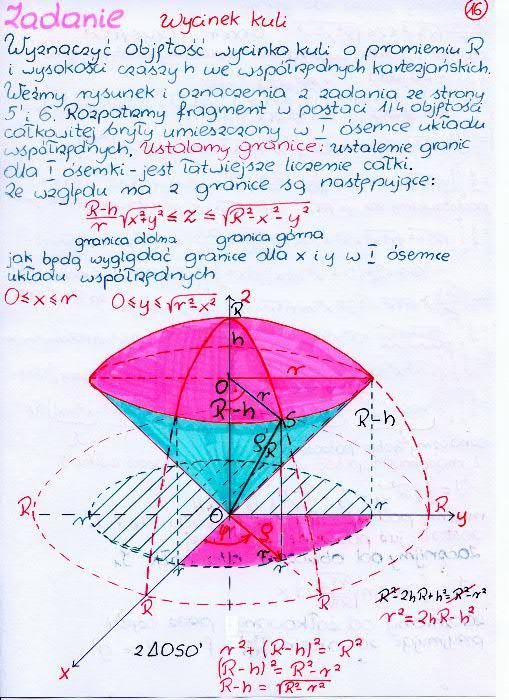 Zadanie Wycinek kuli 16
Wyznaczyć objętość wycinka kuli o promieniu R
i wysokości czaszy h we współrzędnych kartezjańskich.
Weźmy rysunek i oznaczenia z zadania ze strony
5 i 6. Rozpatrzmy fragment w postaci 1/4 objętości
całkowitej bryły umieszczony w I ósemce układu
współrzędnych. Ustalamy granice: ustalenie granic
dla I ósemki - jest łatwiejsze liczenie całki.
Ze względu na z granice są następujące:
R-h/r √x²+y² ≤ z ≤ √R²-x²-y²
granica dolna granica górna
jak będą wyglądać granice dla x i y w I ósemce
układu współrzędnych
0≤x≤r 0≤y≤√r²-x²
z
R
h
r
O' r
R-h S R-h
ρ R
R r O r R y
φ ρ
r r
R R
x
R²-2hR+h²=R²-r²
r²=2hR-h²
z ΔOSO' r²+(R-h)²=R²
(R-h)²=R²-r²
R-h=√R²-r²